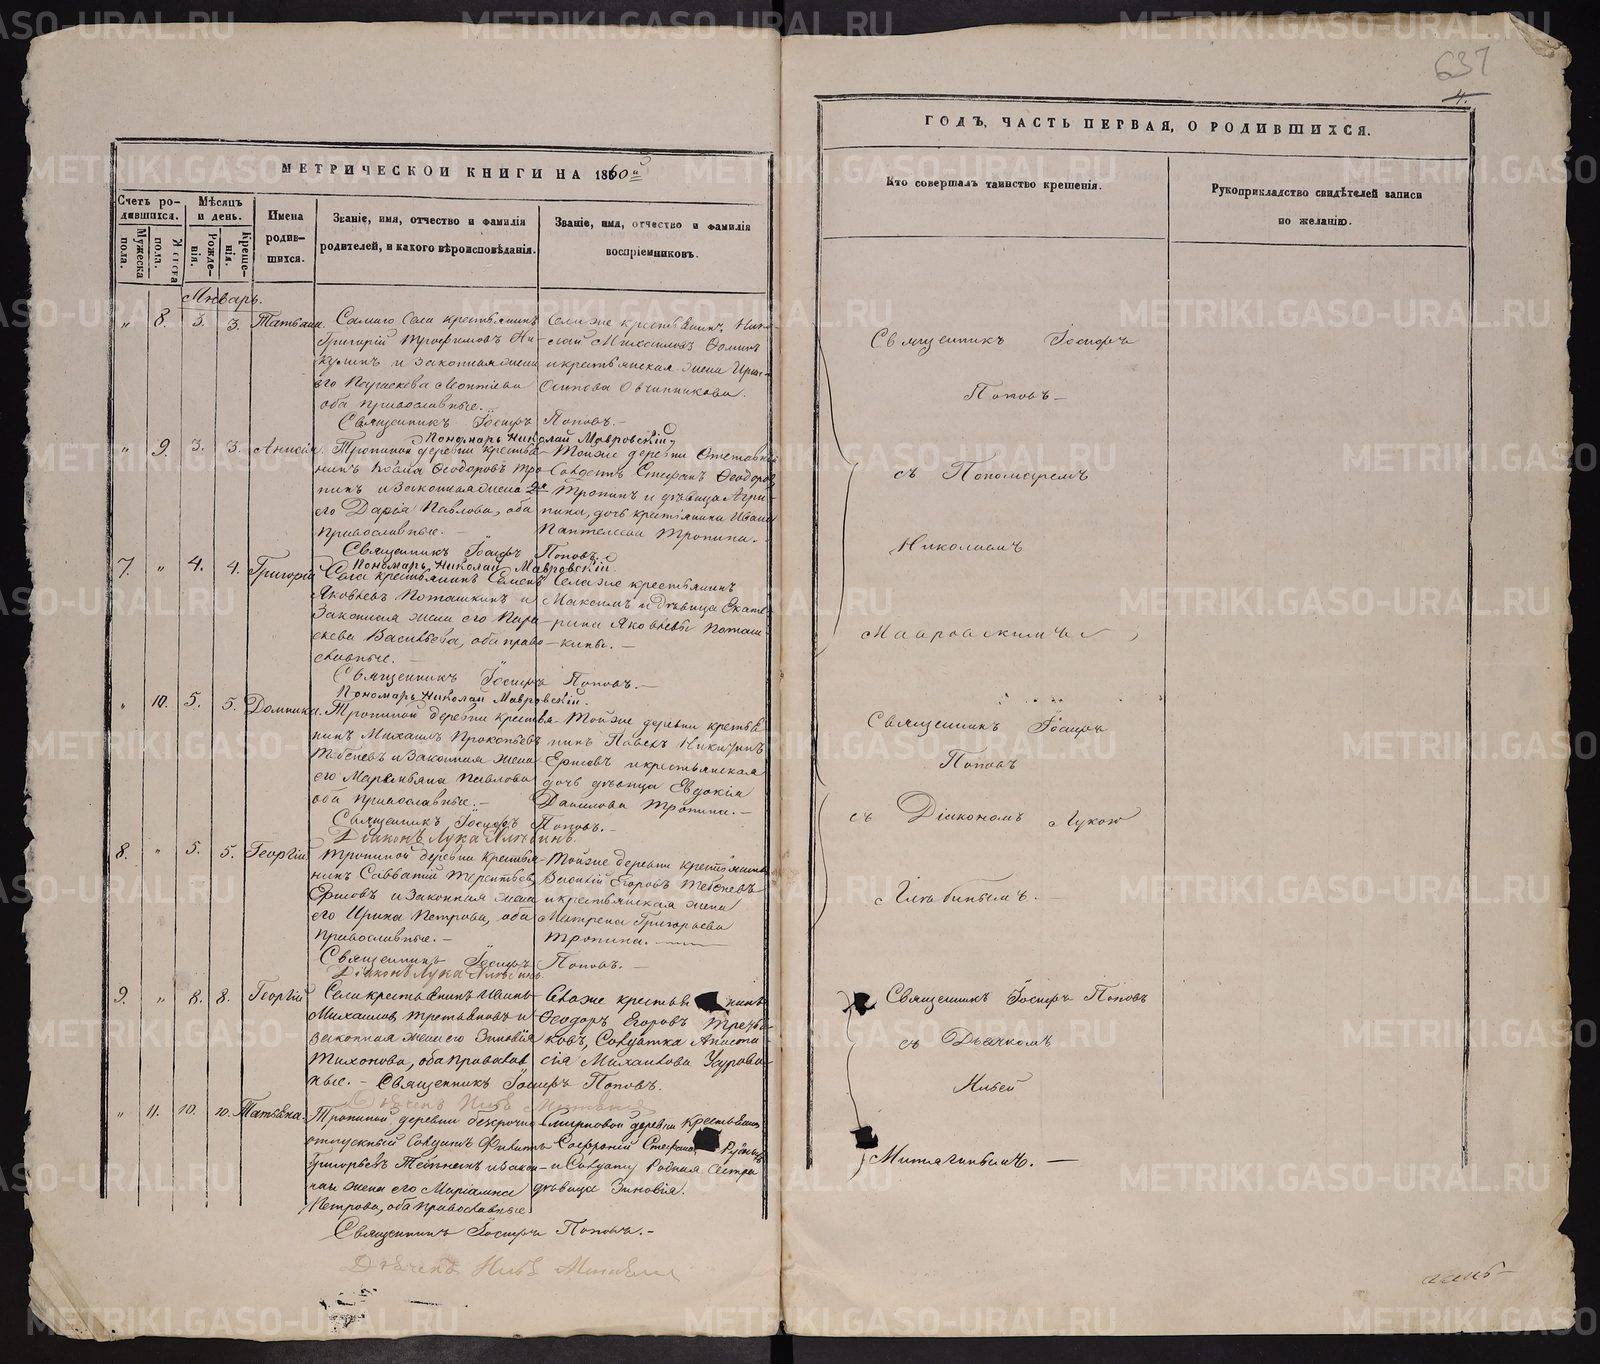 637
4.
МЕТРИЧЕСКОЙ КНИГИ НА 1860й
ГОДЪ, ЧАСТЬ ПЕРВАЯ, О РОДИВШИХСЯ.
Счетъ родившихся.
Мужеска пола.
Женска пола.
Мѣсяцъ и день.
Рожденія.
Крещенія.
Имена родившихся.
Званіе, имя, отчество и фамилія
родителей, и какого вѣроисповѣданія.
Званіе, имя, отчество и фамилія
воспріемниковъ.
Кто совершалъ таинство крещенія.
Рукоприкладство свидѣтелей записи
по желанію.
Январь.
" 8. 3. 3. Татьяна.
Самаго Села крестьянинъ
Григорій Трофимовъ Ни-
кулинъ и законная жена
его Параскева Леонтіева
оба православные.
Села же крестьянинъ Нико-
лай Михаиловъ Фоминъ
и крестьянская жена Ирина
Осипова Овчинникова.
Священникъ Іосифъ Поповъ.—
Пономарь Николай Мавровскій
" 9. 3. 3. Анисія.
Тропиной деревни крестья-
нинъ Козма Ѳеодоровъ Тро-
пинъ и законная жена 2я
его Дарія Павлова, оба
православные.
Тойже деревни Отставной
Солдатъ Стефанъ Ѳеодоровъ
Тропинъ и дѣвица Агри-
пина, дочь крестьянина Ивана
Пантелеева Тропина.
Священникъ Іосифъ Поповъ.
Пономарь Николай Мавровскій.
7. " 4. 4. Григорій
Села крестьянинъ Семенъ
Яковлевъ Поташкинъ и
Законная жена его Пара-
скева Васильева, оба право-
славные.—
Села же крестьянинъ
Максимъ и дѣвица Екате-
рина Яковлевы Поташ-
кины.—
Священникъ Іосифъ Поповъ.—
Пономарь Николай Мавровскій.
" 10. 5. 5. Домника.
Тропиной деревни крестья-
нинъ Михаилъ Прокопьевъ
Тебеневъ и законная жена
его Маремьяна Павлова
оба православные.—
Тойже деревни крестья-
нинъ Павелъ Никитинъ
Ершовъ и крестьянская
дочь дѣвица Евдокія
Данилова Тропина.—
Священникъ Іосифъ Поповъ.—
Діаконъ Лука
8. " 5. 5. Георгій
Тропиной деревни крестья-
нинъ Савватій Терентьевъ
Ершовъ и законная жена
его Ирина Петрова, оба
православные.—
Тойже деревни крестьянинъ
Василій Егоровъ Тебеневъ
и крестьянская жена
Матрена Григорьева
Тропина.
Священникъ Іосифъ Поповъ.—
Діаконъ Лука
9. " 8. 8. Георгій
Села крестьянинъ Иванъ
Михаиловъ Третьяковъ и
законная жена его Зиновія
Тихонова, оба православ-
ные.— Священникъ Іосифъ Поповъ.
Села же крестьянинъ
Ѳеодоръ Егоровъ Третья-
ковъ, Солдатка Анаста-
сія Михаилова
" 11. 10. 10. Татьяна.
Тропиной деревни безсрочно
отпускный Солдатъ Филитъ
Григорьевъ и закон-
ная жена его Маріамна
Петрова, оба православные
деревни крестьянинъ
Софроній
и Солдату родная сестра
дѣвица Зиновія.
Священникъ Іосифъ Поповъ.—
Священникъ Іосифъ
Поповъ—
съ Пономаремъ
Николаемъ
Мавровскимъ
Священникъ Іосифъ
Поповъ
съ Діакономъ Лукою
Священникъ Іосифъ Поповъ
съ Дьячкомъ